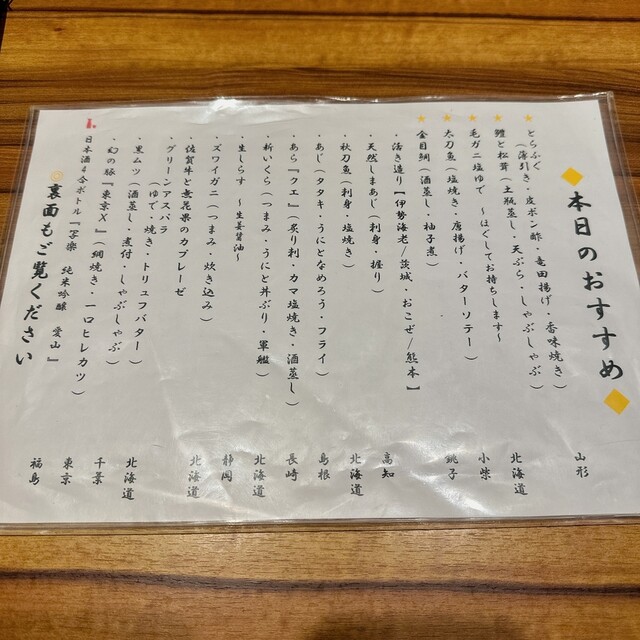 ◆本日のおすすめ◆
★とらふぐ
(薄引き・皮ポン酢・竜田揚げ・香味焼き) 山形
★鱧と松茸(土瓶蒸し・天ぷら・しゃぶしゃぶ)
★毛ガニ塩ゆで ～ほぐしてお持ちします～ 北海道
★太刀魚(塩焼き・唐揚げ・バターソテー) 小柴
★金目鯛(酒蒸し・柚子煮) 銚子
・活き造り【伊勢海老/茨城、おこぜ/熊本】
・天然しまあじ(刺身・握り) 高知
・秋刀魚(刺身・塩焼き) 北海道
・あじ(タタキ・うにとなめろう・フライ) 島根
・あら『クエ』(炙り刺・カマ塩焼き・酒蒸し) 長崎
・新いくら(つまみ・うにと丼ぶり・軍艦) 北海道
・生しらす ～生姜醤油～ 静岡
・ズワイガニ(つまみ・炊き込み) 北海道
・佐賀牛と無花果のカプレーゼ
・グリーンアスパラ
(ゆで・焼き・トリュフバター) 北海道
・黒ムツ(酒蒸し・煮付・しゃぶしゃぶ) 千葉
・幻の豚『東京X』(網焼き・一口ヒレカツ) 東京
1. 日本酒4合ボトル『写楽 純米吟醸 愛山』 福島
◎裏面もご覧ください